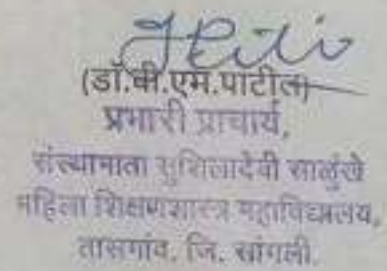 (डॉ.बी.एम.पाटील)
प्रभारी प्राचार्य,
संस्थामाता सुशिलादेवी साळुंखे
महिला शिक्षणशास्त्र महाविद्यालय,
तासगांव. जि. सांगली.